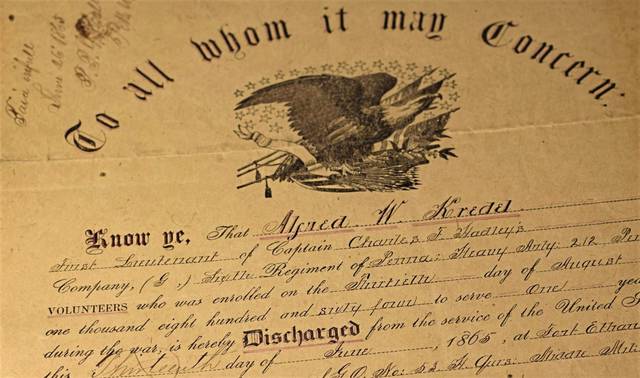 Paid in full
June 1865
To all whom it may Concern:
Know ye, That Alfred W. Kredel
First Lieutenant of Captain Charles F. Hadley's
Company, (G.) Sixth Regiment of Penna: Heavy Arty: 212
VOLUNTEERS who was enrolled on the Thirtieth day of August
one thousand eight hundred and sixty four to serve One
during the war, is hereby Discharged from the service of the United
this Thirteenth day of June, 1865, at Fort Ethan
(G.O. No: 53